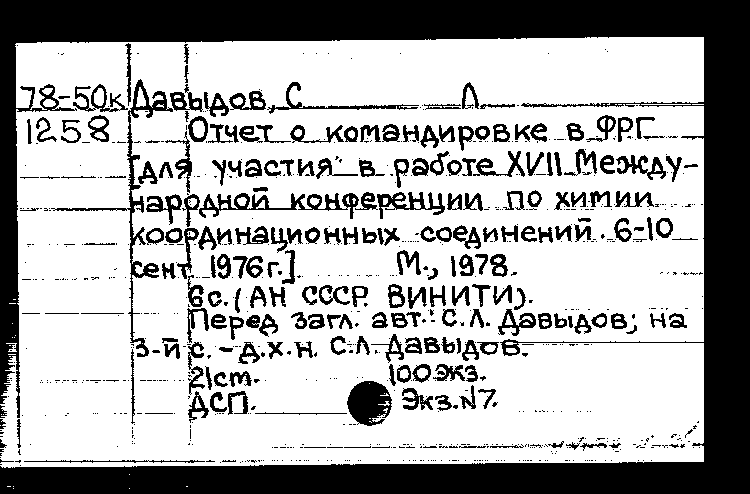 78-50к Давыдов, С Л.
1258 Отчет о командировке в ФРГ
[для участия в работе XVII Между-
народной конференции по химии
координационных соединений. 6-10
сент 1976г.] М., 1978.
6с. (АН СССР. ВИНИТИ).
Перед загл. авт.: С.Л. Давыдов; на
3-й с. - д.х.н. С.Л. Давыдов.
21см. 100экз.
ДСП. Экз.N7.